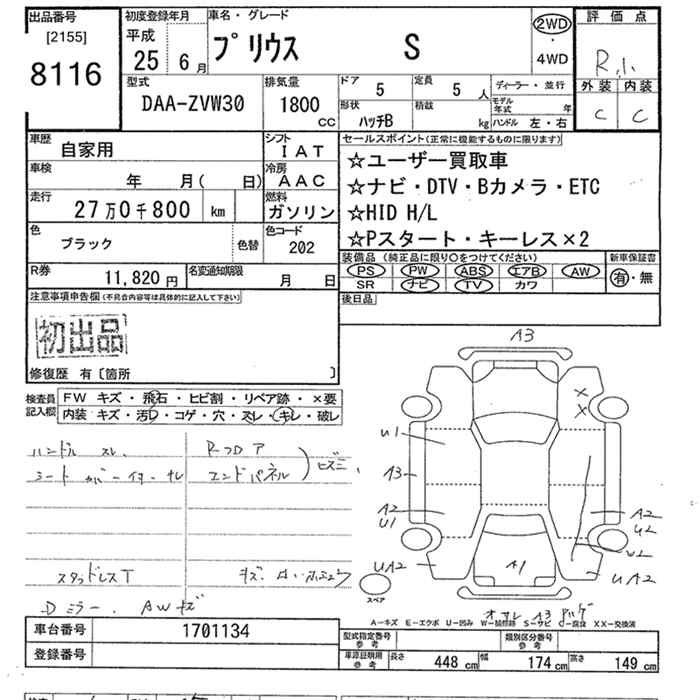 出品番号
[2155]
8116
初度登録年月
平成
25 6月
車名・グレード
プリウス S
2WD
・
4WD
評価点
R,1.
外装 内装
C C
型式
DAA-ZVW30
排気量
1800
CC
ドア 5
定員 5 人
ディーラー・並行
形状
ハッチB
積載 kg
モデル年式 年
ハンドル 左・右
車歴
自家用
シフト
IAT
車検
年 月( 日)
冷房
AAC
走行
27万0千800 km
燃料
ガソリン
色
ブラック
色替
色コード
202
R券
11,820円
名変通知期限
月 日
セールスポイント(正常に機能するものに限ります)
☆ユーザー買取車
☆ナビ・DTV・Bカメラ・ETC
☆HID H/L
☆Pスタート・キーレス×2
装備品(純正品に限り〇をつけてください)
PS PW ABS エアB AW
SR ナビ TV カワ
新車保証書
有・無
後日品
注意事項申告欄(不具合内容等は具体的に記入して下さい)
初出品
修復歴 有〔箇所 〕
検査員記入欄
FW キズ・飛石・ヒビ割・リペア跡・×要
内装 キズ・汚レ・コゲ・穴・スレ・キレ・破レ
ハンドル スレ、
シートカバー付・キレ
Rフロア
エンドパネル
スタッドレスT
Dミラー、AWキズ
A3
X
X
U1
A3
A2
U1
UA2
A1
A2
U2
U2
UA2
スペア
A3
A-キズ E-エクボ U-凹み W-補修跡 S-サビ C-腐食 XX-交換済
車台番号 1701134
登録番号
型式指定番号
参考
類別区分番号
参考
車庫証明用
参考
長さ 448 cm 幅 174 cm 高さ 149 cm